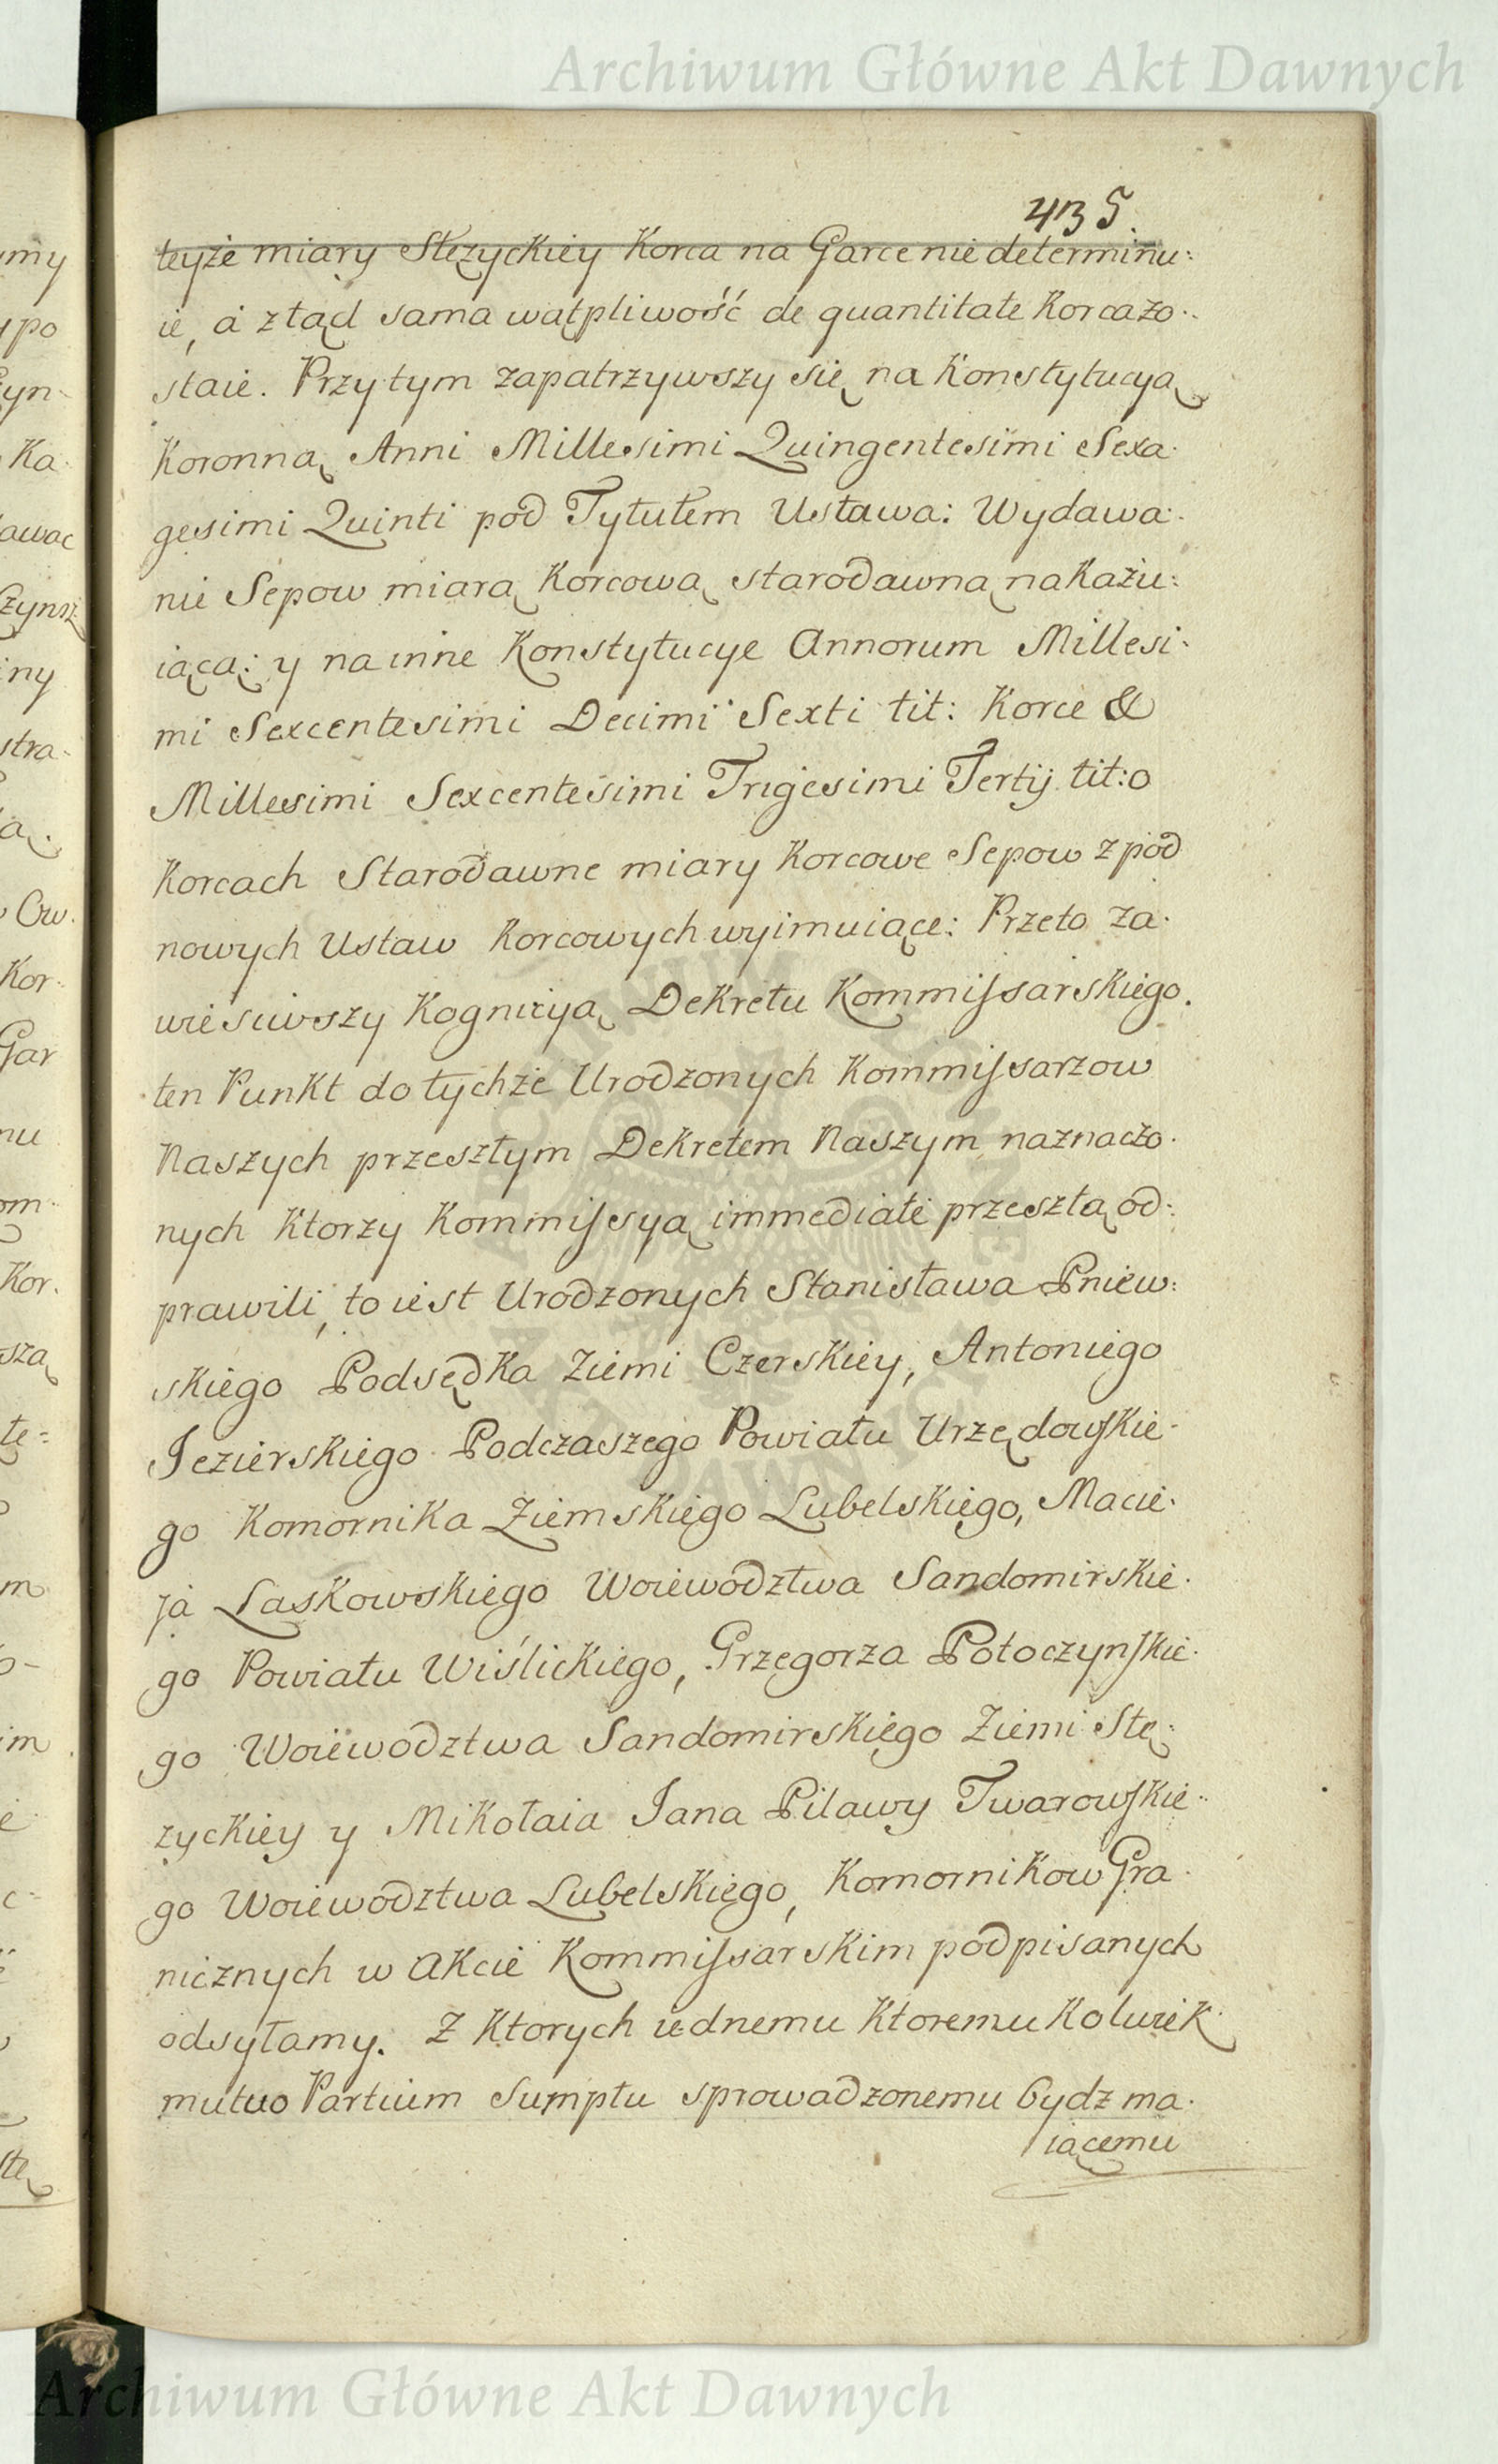 Archiwum Główne Akt Dawnych
435.
teyże miary Stężyckiey Korca na Garce nie determinu:
ie, a ztąd sama wątpliwość de quantitate Korca zo:
staie. Przytym zapatrzywszy się na Konstytucyą
Koronną Anni Millesimi Quingentesimi Sexa:
gesimi Quinti pod Tytułem Ustawa: Wydawa:
nie Sepow miarą Korcową starodawną nakażu:
iącą: y na inne Konstytucye Annorum Millesi:
mi Sexcentesimi Decimi Sexti tit: Korce &
Millesimi Sexcentesimi Trigesimi Tertij tit: o
Korcach Starodawne miary Korcowe Sepow z pod
nowych Ustaw Korcowych wyimuiące: Przeto Za:
wiesiwszy Kognicyą Dekretu Kommissarskiego.
ten Punkt do tychże Urodzonych Kommissarzow
Naszych przeszłym Dekretem Naszym naznaczo:
nych Ktorzy Kommissyą immediate przeszłą od:
prawili, to iest Urodzonych Stanisława Pniew:
skiego Podsędka Ziemi Czerskiey, Antoniego
Jezierskiego Podczaszego Powiatu Urzędowskie:
go Komornika Ziemskiego Lubelskiego, Macie:
ja Laskowskiego Woiewodztwa Sandomirskie:
go Powiatu Wiślickiego, Grzegorza Potoczynskie:
go Woiewodztwa Sandomirskiego Ziemi Stę:
życkiey y Mikołaia Jana Pilawy Twarowskie:
go Woiewodztwa Lubelskiego, Komornikow Gra:
nicznych w Akcie Kommissarskim podpisanych
odsyłamy. Z Ktorych iednemu Ktoremu Kolwiek
mutuo Partium Sumptu sprowadzonemu bydz ma:
iącemu
Archiwum Główne Akt Dawnych